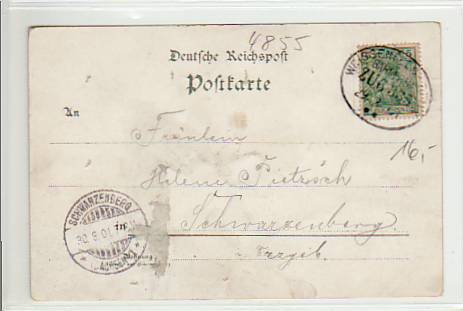 4855
Deutsche Reichspost
Postkarte
An
Fräulein
Helene Pietzsch
in
Schwarzenberg
i. Erzgeb.
Wohnung
SCHWARZENBERG
30.9.01
ZUG
16,-